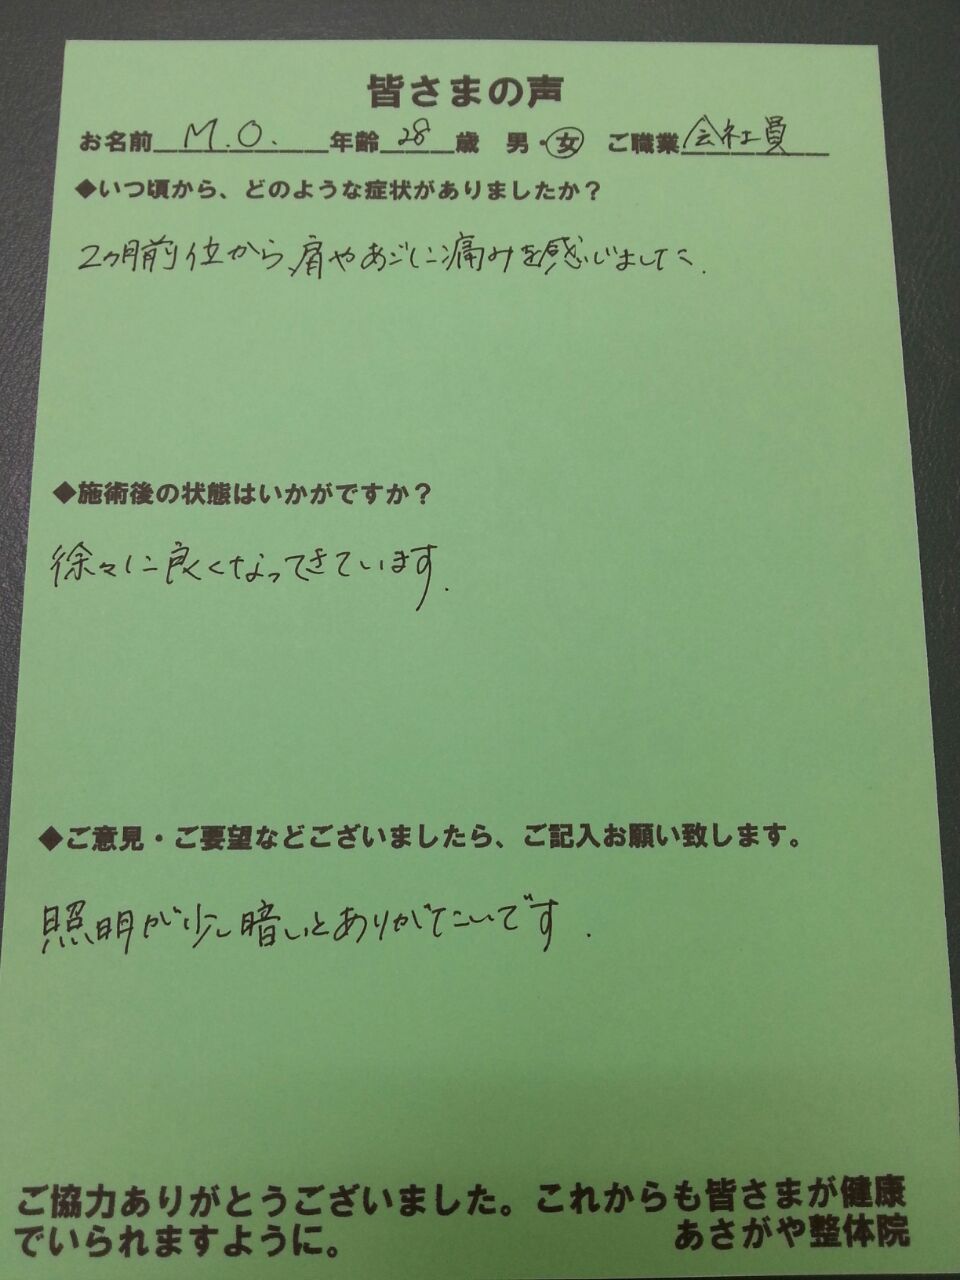 皆さまの声
お名前 M.O. 年齢 28 歳 男・女 ご職業 会社員
◆いつ頃から、どのような症状がありましたか？
2ヶ月前位から、肩やあごに痛みを感じました.
◆施術後の状態はいかがですか？
徐々に良くなってきています.
◆ご意見・ご要望などございましたら、ご記入お願い致します。
照明が少し暗いとありがたいです.
ご協力ありがとうございました。これからも皆さまが健康
でいられますように。 あさがや整体院